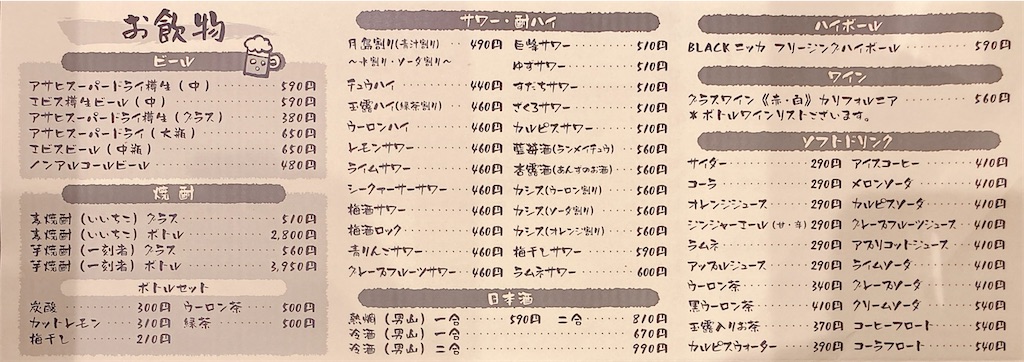 お飲物
ビール
アサヒスーパードライ樽生（中） 590円
エビス樽生ビール（中） 590円
アサヒスーパードライ樽生（グラス） 380円
アサヒスーパードライ（大瓶） 650円
エビスビール（中瓶） 650円
ノンアルコールビール 480円
焼酎
麦焼酎（いいちこ）グラス 510円
麦焼酎（いいちこ）ボトル 2,800円
芋焼酎（一刻者）グラス 560円
芋焼酎（一刻者）ボトル 3,950円
ボトルセット
炭酸 300円 ウーロン茶 500円
カットレモン 310円 緑茶 500円
梅干し 210円
サワー・酎ハイ
月島割り(青汁割り) 490円
〜水割り・ソーダ割り〜
チュウハイ 440円
玉露ハイ(緑茶割り) 460円
ウーロンハイ 460円
レモンサワー 460円
ライムサワー 460円
シークァーサーサワー 460円
梅酒サワー 460円
梅酒ロック 460円
青りんごサワー 460円
グレープフルーツサワー 460円
巨峰サワー 510円
ゆずサワー 510円
すだちサワー 510円
ざくろサワー 510円
カルピスサワー 510円
藍苺酒(ランメイチュウ) 560円
杏露酒(あんずのお酒) 560円
カシス(ウーロン割り) 560円
カシス(ソーダ割り) 560円
カシス(オレンジ割り) 560円
梅干しサワー 590円
ラムネサワー 600円
日本酒
熱燗（男山）一合 590円 二合 810円
冷酒（男山）一合 670円
冷酒（男山）二合 990円
ハイボール
BLACKニッカ フリージングハイボール 590円
ワイン
グラスワイン《赤・白》カリフォルニア 560円
＊ボトルワインリストございます。
ソフトドリンク
サイダー 290円
コーラ 290円
オレンジジュース 290円
ジンジャーエール(甘・辛) 290円
ラムネ 290円
アップルジュース 290円
ウーロン茶 340円
黒ウーロン茶 410円
玉露入りお茶 370円
カルピスウォーター 390円
アイスコーヒー 410円
メロンソーダ 410円
カルピスソーダ 410円
グレープフルーツジュース 410円
アプリコットジュース 410円
ライムソーダ 410円
グレープソーダ 410円
クリームソーダ 540円
コーヒーフロート 540円
コーラフロート 540円